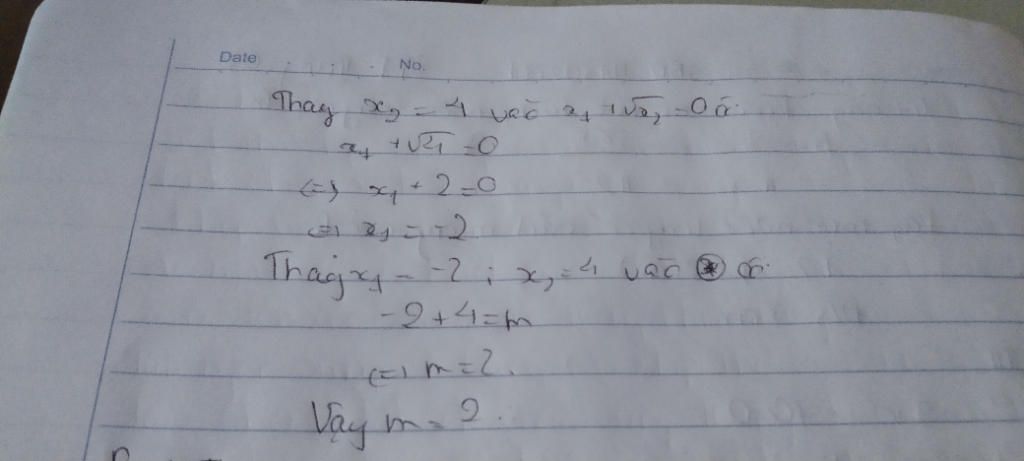 Date No.
Thay x₂ = 4 vào x₁ + √x₂ = 0 có:
x₁ + √4 = 0
(=) x₁ + 2 = 0
(=) x₁ = -2
Thay x₁ = -2 ; x₂ = 4 vào (*) có:
-2 + 4 = m
(=) m = 2.
Vậy m = 2.